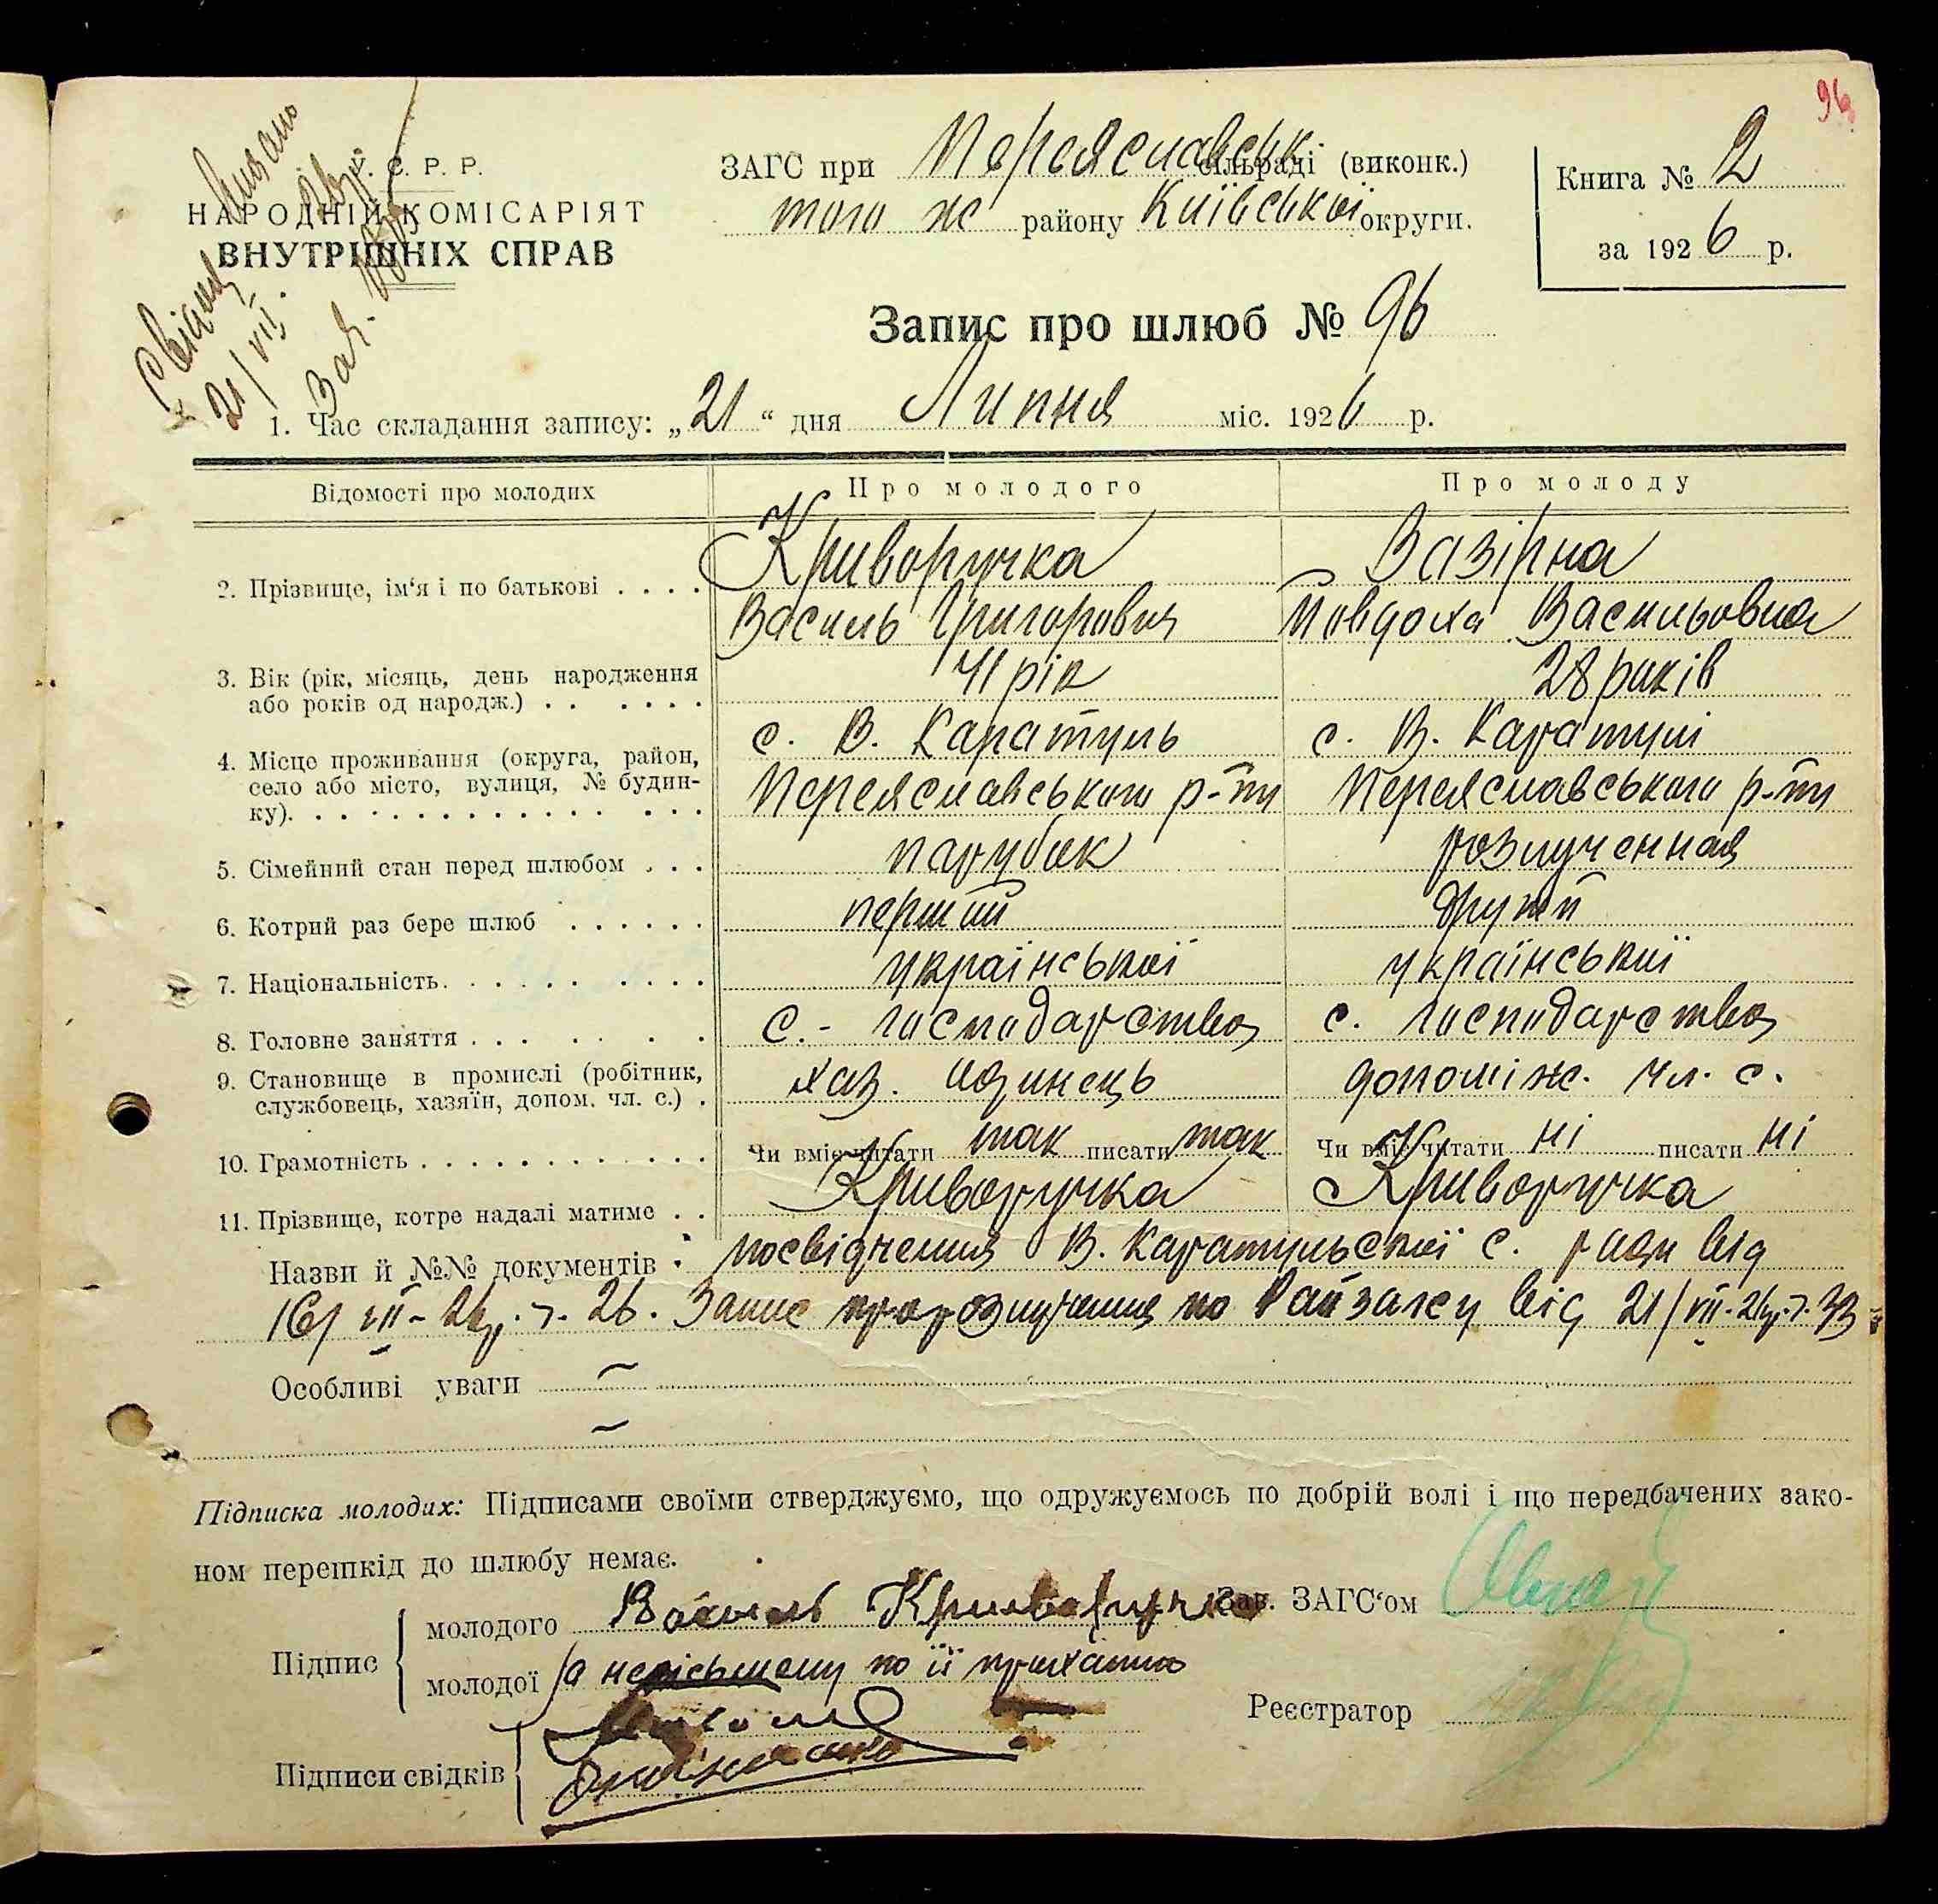 96
У. С. Р. Р.
НАРОДНІЙ КОМІСАРІЯТ
ВНУТРІШНІХ СПРАВ
21/VII
ЗАГС при Переяславськ сільраді (виконк.)
того ж району Київської округи.
Книга № 2
за 1926 р.
Запис про шлюб № 96
1. Час складання запису: „21“ дня Липня міс. 1926 р.
Відомості про молодих Про молодого Про молоду
2. Прізвище, ім‘я і по батькові . . . . Криворучка Вазірна
Василь Григорович Повдоха Васильовна
3. Вік (рік, місяць, день народження 41 рік 28 років
або років од народж.) . . . . . .
4. Місце проживання (округа, район, с. В. Каратуль с. В. Каратулі
село або місто, вулиця, № будин- Переяславського р-ну Переяславського р-ну
ку). . . . . . . . . . . . . . . .
5. Сімейний стан перед шлюбом . . . парубок розлученная
6. Котрий раз бере шлюб . . . . . . перший другий
7. Національність. . . . . . . . . . української української
8. Головне заняття . . . . . . с.- господарство с. господарство
9. Становище в промислі (робітник, хаз. одинець допоміж. чл. с.
службовець, хазяїн, допом. чл. с.) .
10. Грамотність . . . . . . . . . . . . Чи вміє читати так писати так Чи вміє читати ні писати ні
11. Прізвище, котре надалі матиме . . Криворучка Криворучка
Назви й №№ документів . посвідчення В. Каратульської с. ради від
16/VII-26 р. ч. 26. Запис про розлучення по Райзагсу від 21/VII-26 р. ч. 33
Особливі уваги —
—
Підписка молодих: Підписами своїми стверджуємо, що одружуємось по добрій волі і що передбачених зако-
ном перешкід до шлюбу немає.
Підпис
молодого Василь Криворучка
молодої за неписьмену по її проханню
Зав. ЗАГС‘ом
Реєстратор
Підписи свідків